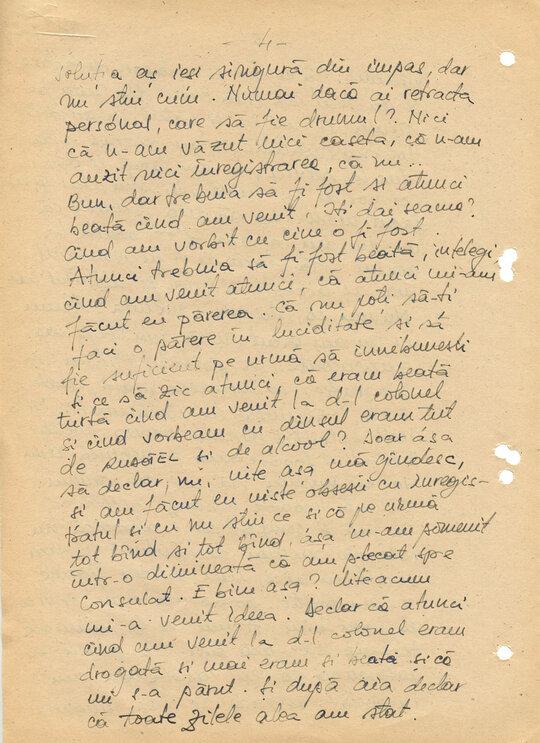 - 4 -
soluția aș ieși singură din impas, dar
nu știu cum. Numai dacă ai retracta
personal, care să fie drumul? Nici
că n-am văzut nici caseta, că n-am
auzit nici înregistrarea, că nu..
Bun, dar trebuia să fi fost și atunci
beată cînd am venit. Îți dai seama?
Cînd am vorbit cu cine o fi fost.
Atunci trebuia să fi fost beată, înțelegi,
cînd am venit atunci, că atunci mi-am
făcut eu părerea. Că nu poți să-ți
faci o părere în luciditate și să
fie suficient pe urmă să înnebunești
Și ce să zic atunci, că eram beată
turtă cînd am venit la d-l colonel
și cînd vorbeam cu dînsul eram tot
de și de alcool? Doar așa
să declar, nu, uite așa mă gîndesc,
și am făcut eu niște obsesii cu înregis-
tratul și cu nu știu ce și că pe urmă
tot bînd și tot bînd, așa m-am pomenit
într-o dimineață că am plecat spre
Consulat. E bine așa? Uite acum
mi-a venit ideea. Declar că atunci
cînd am venit la d-l colonel eram
drogată și mai eram și beată și că
mi s-a părut. Și după aia declar
că toate zilele alea am stat.